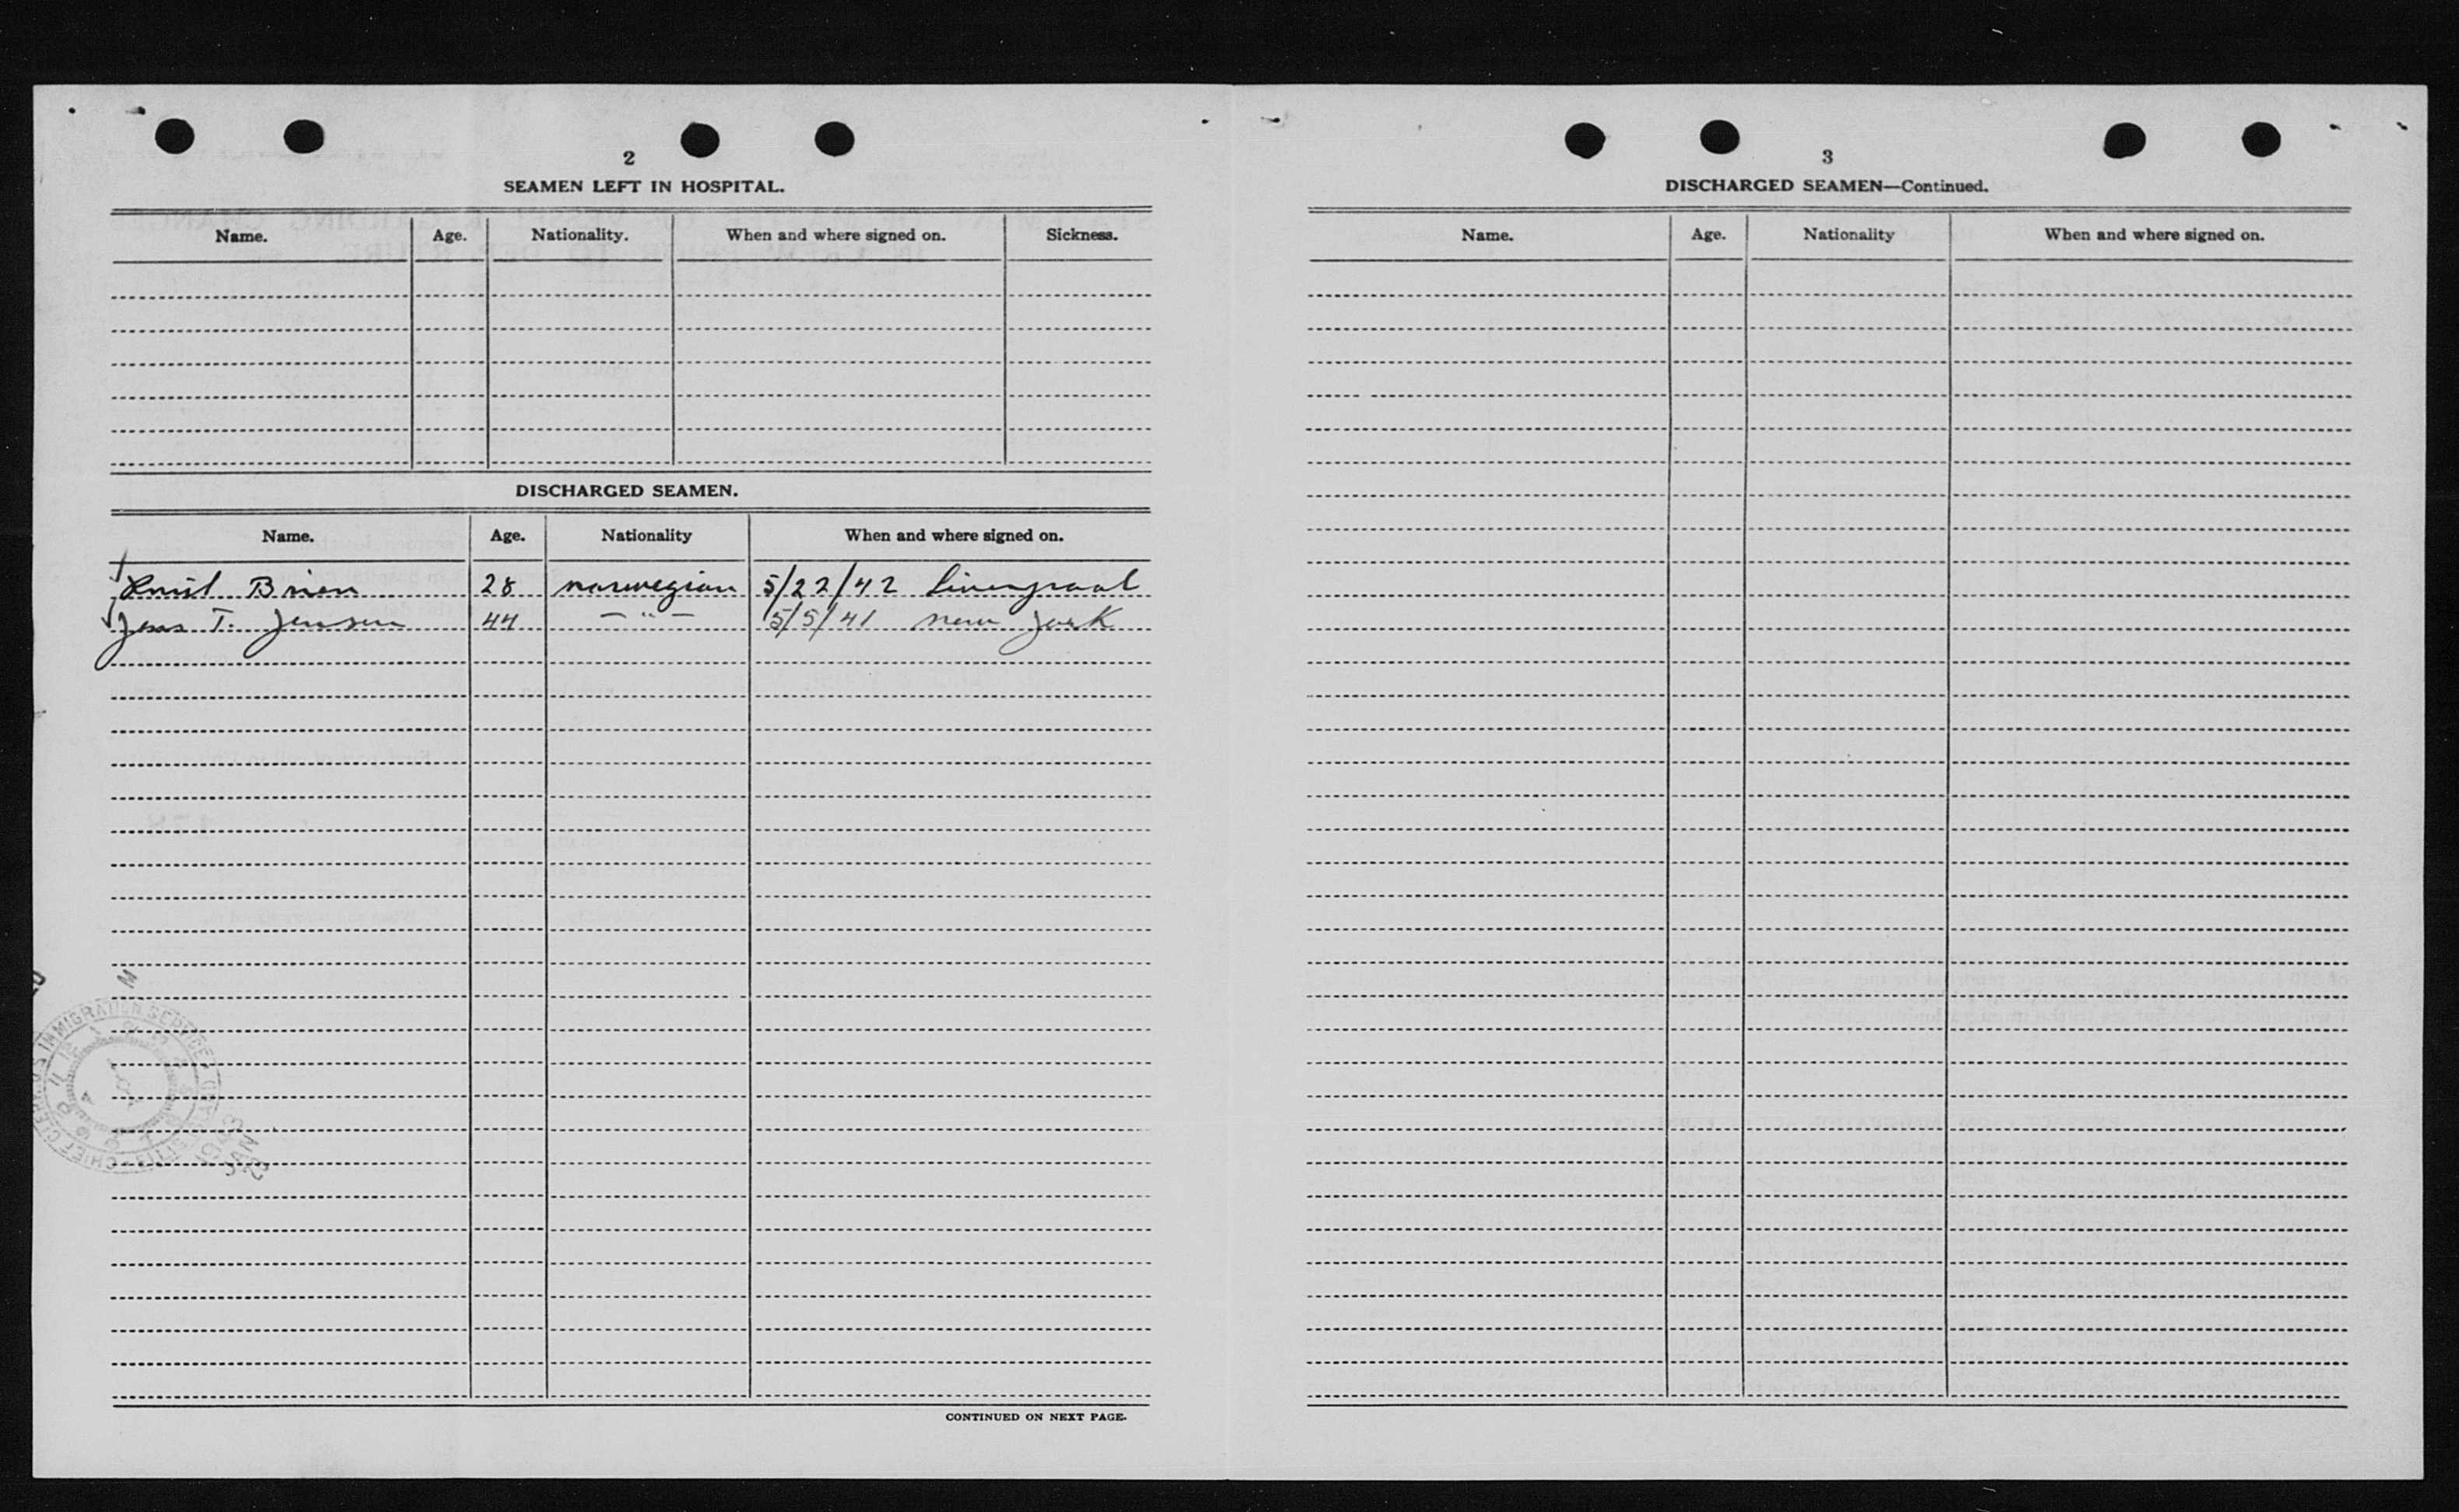 2
SEAMEN LEFT IN HOSPITAL.
Name. Age. Nationality. When and where signed on. Sickness.
DISCHARGED SEAMEN.
Name. Age. Nationality When and where signed on.
Emil Brien 28 norwegian 5/22/42 Liverpool
Jens T. Jensen 44 — " — 5/5/41 new york
CONTINUED ON NEXT PAGE.
IMMIGRATION SERVICE
CHIEF CLERK
3
DISCHARGED SEAMEN—Continued.
Name. Age. Nationality When and where signed on.